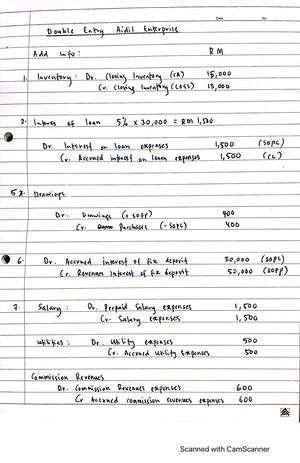 Date No.
Double Entry Aidil Enterprise
Add Info: RM
1. Inventory: Dr. Closing Inventory (CA) 15,000
Cr. Closing Inventory (COGS) 15,000
2. Interes of loan 5% x 30,000 = RM 1,500
Dr. Interest on loan expenses 1,500 (SOPL)
Cr. Accrued interest on loan expenses 1,500 (CL)
5 Drawings
Dr. Drawings (+ SOFP) 400
Cr. Purchases (- SOPL) 400
6. Dr. Accrued interest of fix deposit 50,000 (SOPL)
Cr. Revenues Interest of fix deposit 50,000 (SOFP)
7. Salary: Dr. Prepaid Salary expenses 1,500
Cr. Salary expenses 1,500
Utilities: Dr. Utility expenses 500
Cr. Accrued Utility Expenses 500
Commission Revenues
Dr. Commission Revenues expenses 600
Cr Accrued commission revenues expenses 600
Scanned with CamScanner